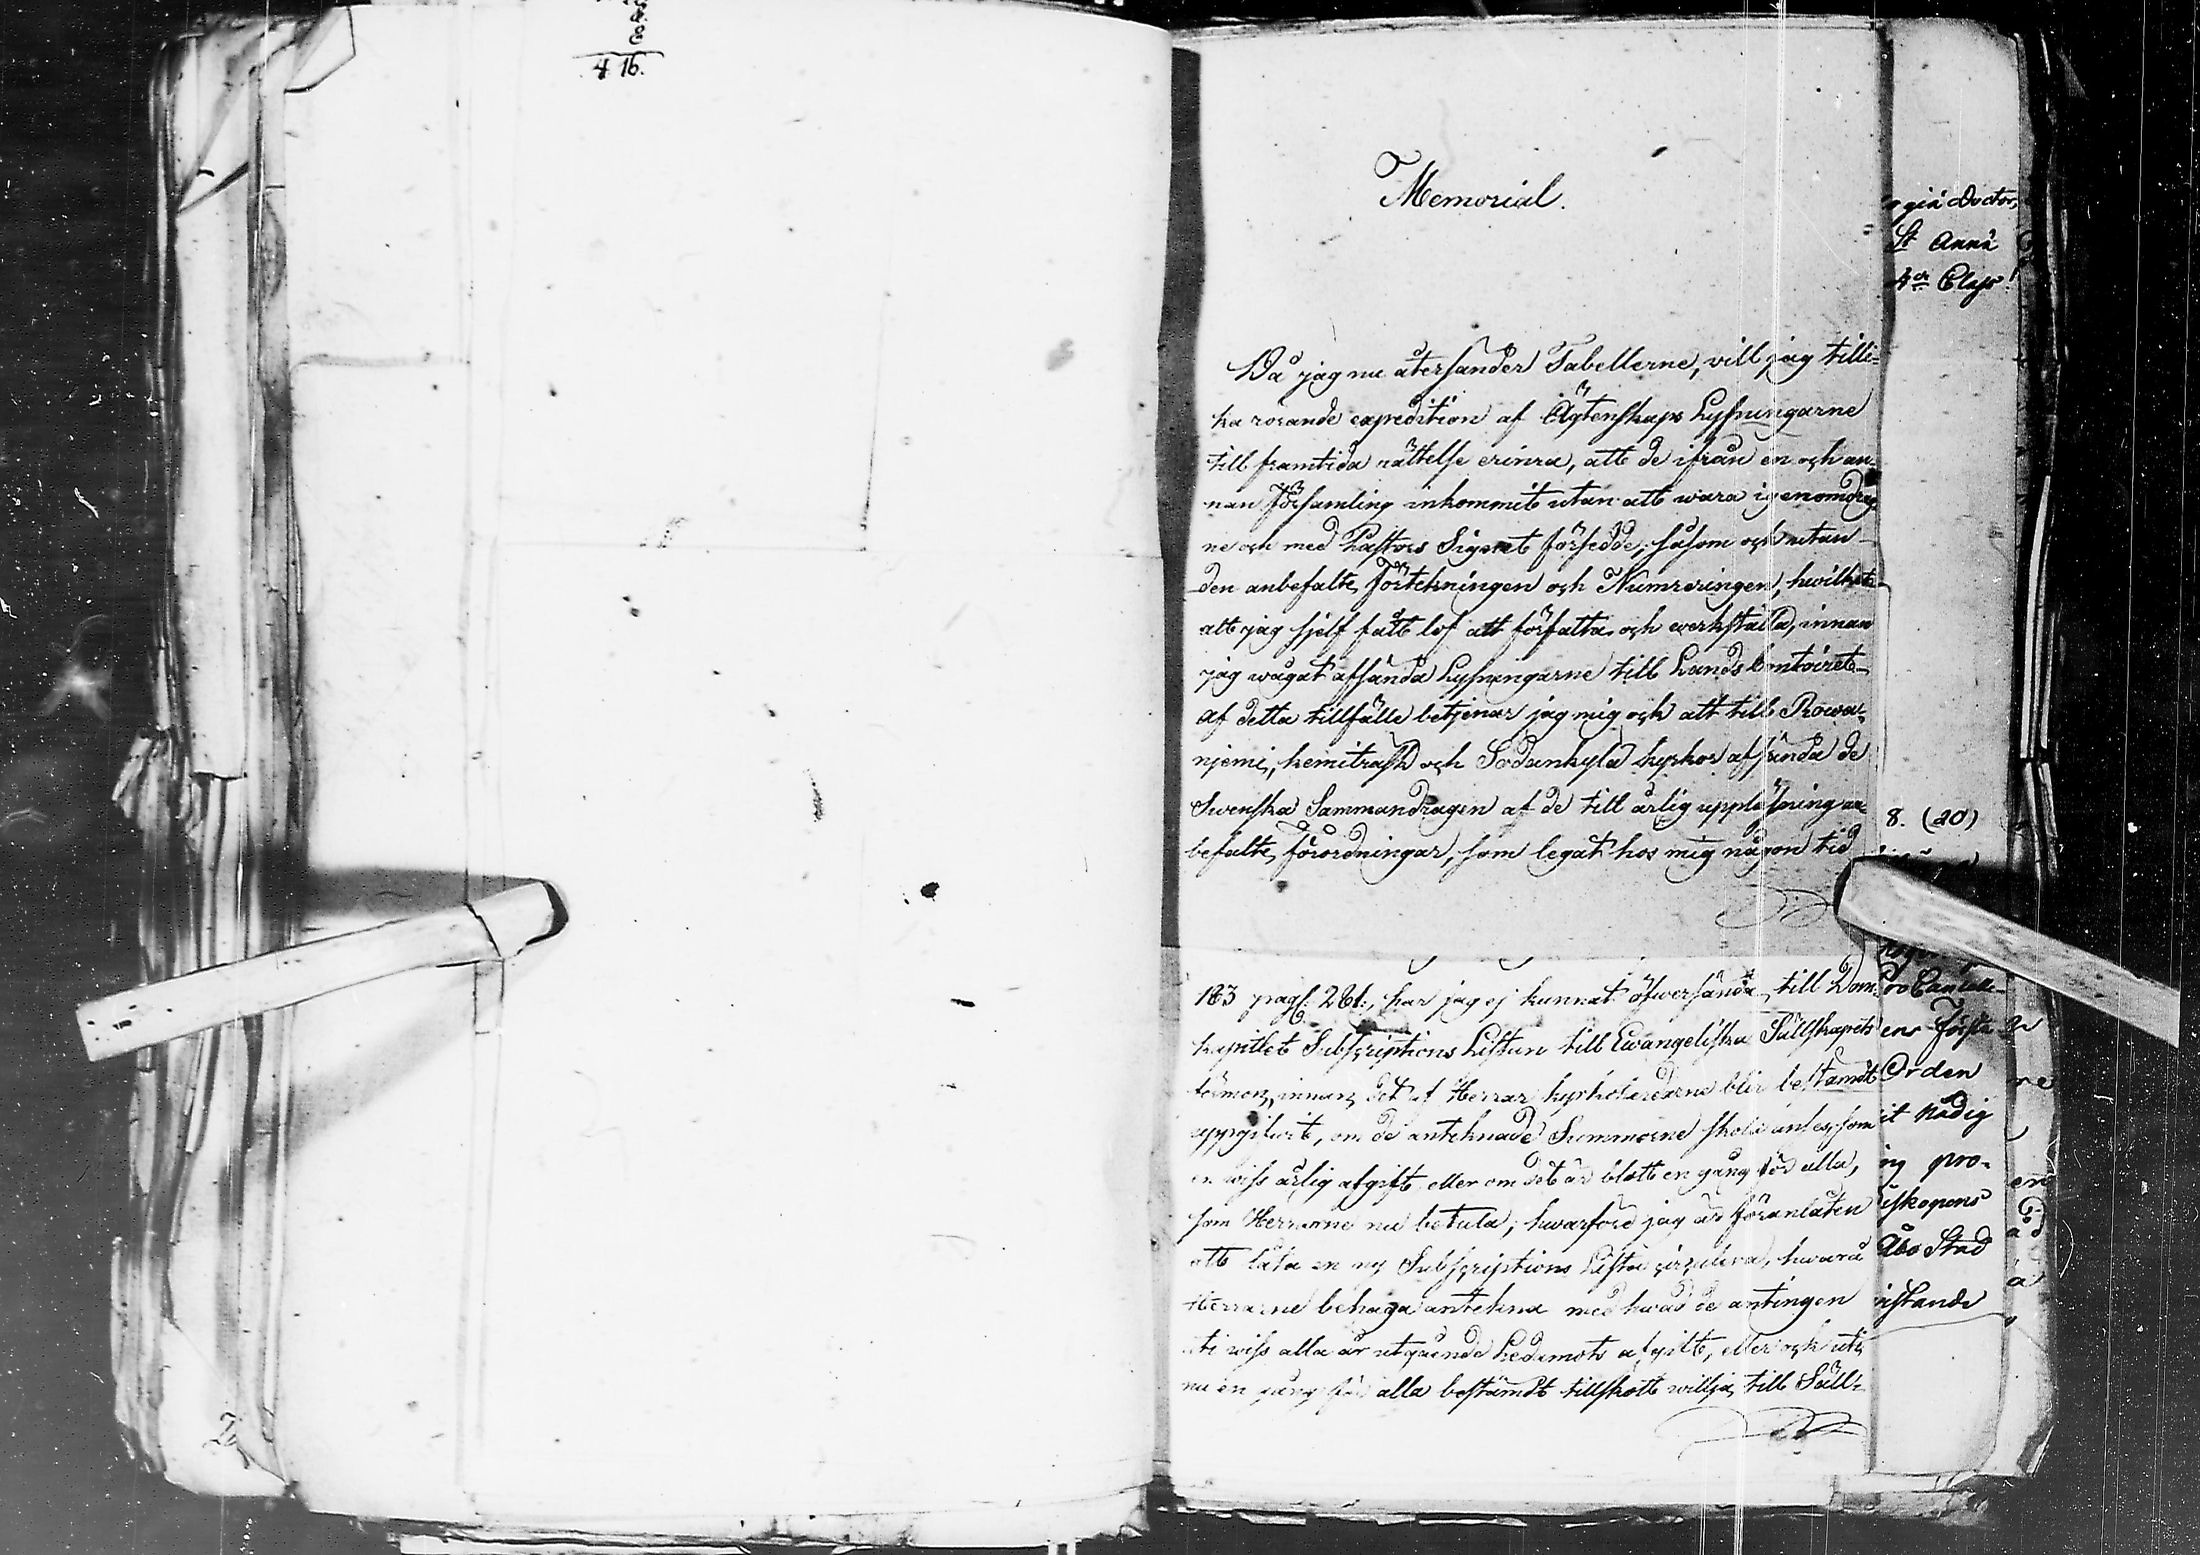 8
4. 16.
Memorial.
Då jag nu återsänder Tabellerne, vill jag tilli-
ka rörande expedition af Ägtenskaps Lysningarne
till framtida rättelse erinra, att de ifrån en och an-
nan Församling inkommit utan att wara igenomdrag
ne och med Pastors Signet försedde, såsom och utan
den anbefalte Förtekningen och Numreringen, hwilket
alt jag sjelf fått lof att författa och werkställa, innan
jag wågat afsända Lysningarne till Landskontoiret
Af detta tillfälle betjenar jag mig och att till Rowa-
njemi, Kemiträsk och Sodankylä kyrkor afsända de
Swenska Sammandragen af de till årlig uppläsning an-
befalte Förordningar, som legat hos mig någon tid
183 pragf. 281., har jag ej kunnat öfwersända till Dom-
kapitlet Subscriptions Listan till Ewangeliska Sällskapets
innan det af Herrar kyrkoherdarne blir bestämdt
uppgifwit, om de anteknade Summorne skola anses som
en wiss årlig afgift eller om det är blott en gång för alla,
som Herrarne nu betala; hwarföre jag är föranlåten
att låta en ny Subscriptions Lista circulera, hwarå
Herrarne behaga antekna med hwad de antingen
uti wiss alla år utgående Ledamots afgift, eller och uti
nu en gång för alla bestämdt tillskott willja till Säll-
gia Doctor,
St Annæ
4de Class!
8. (20)
en Förste
Orden
it Nådig
ng pro-
iskopens
Åbo Stad
istande